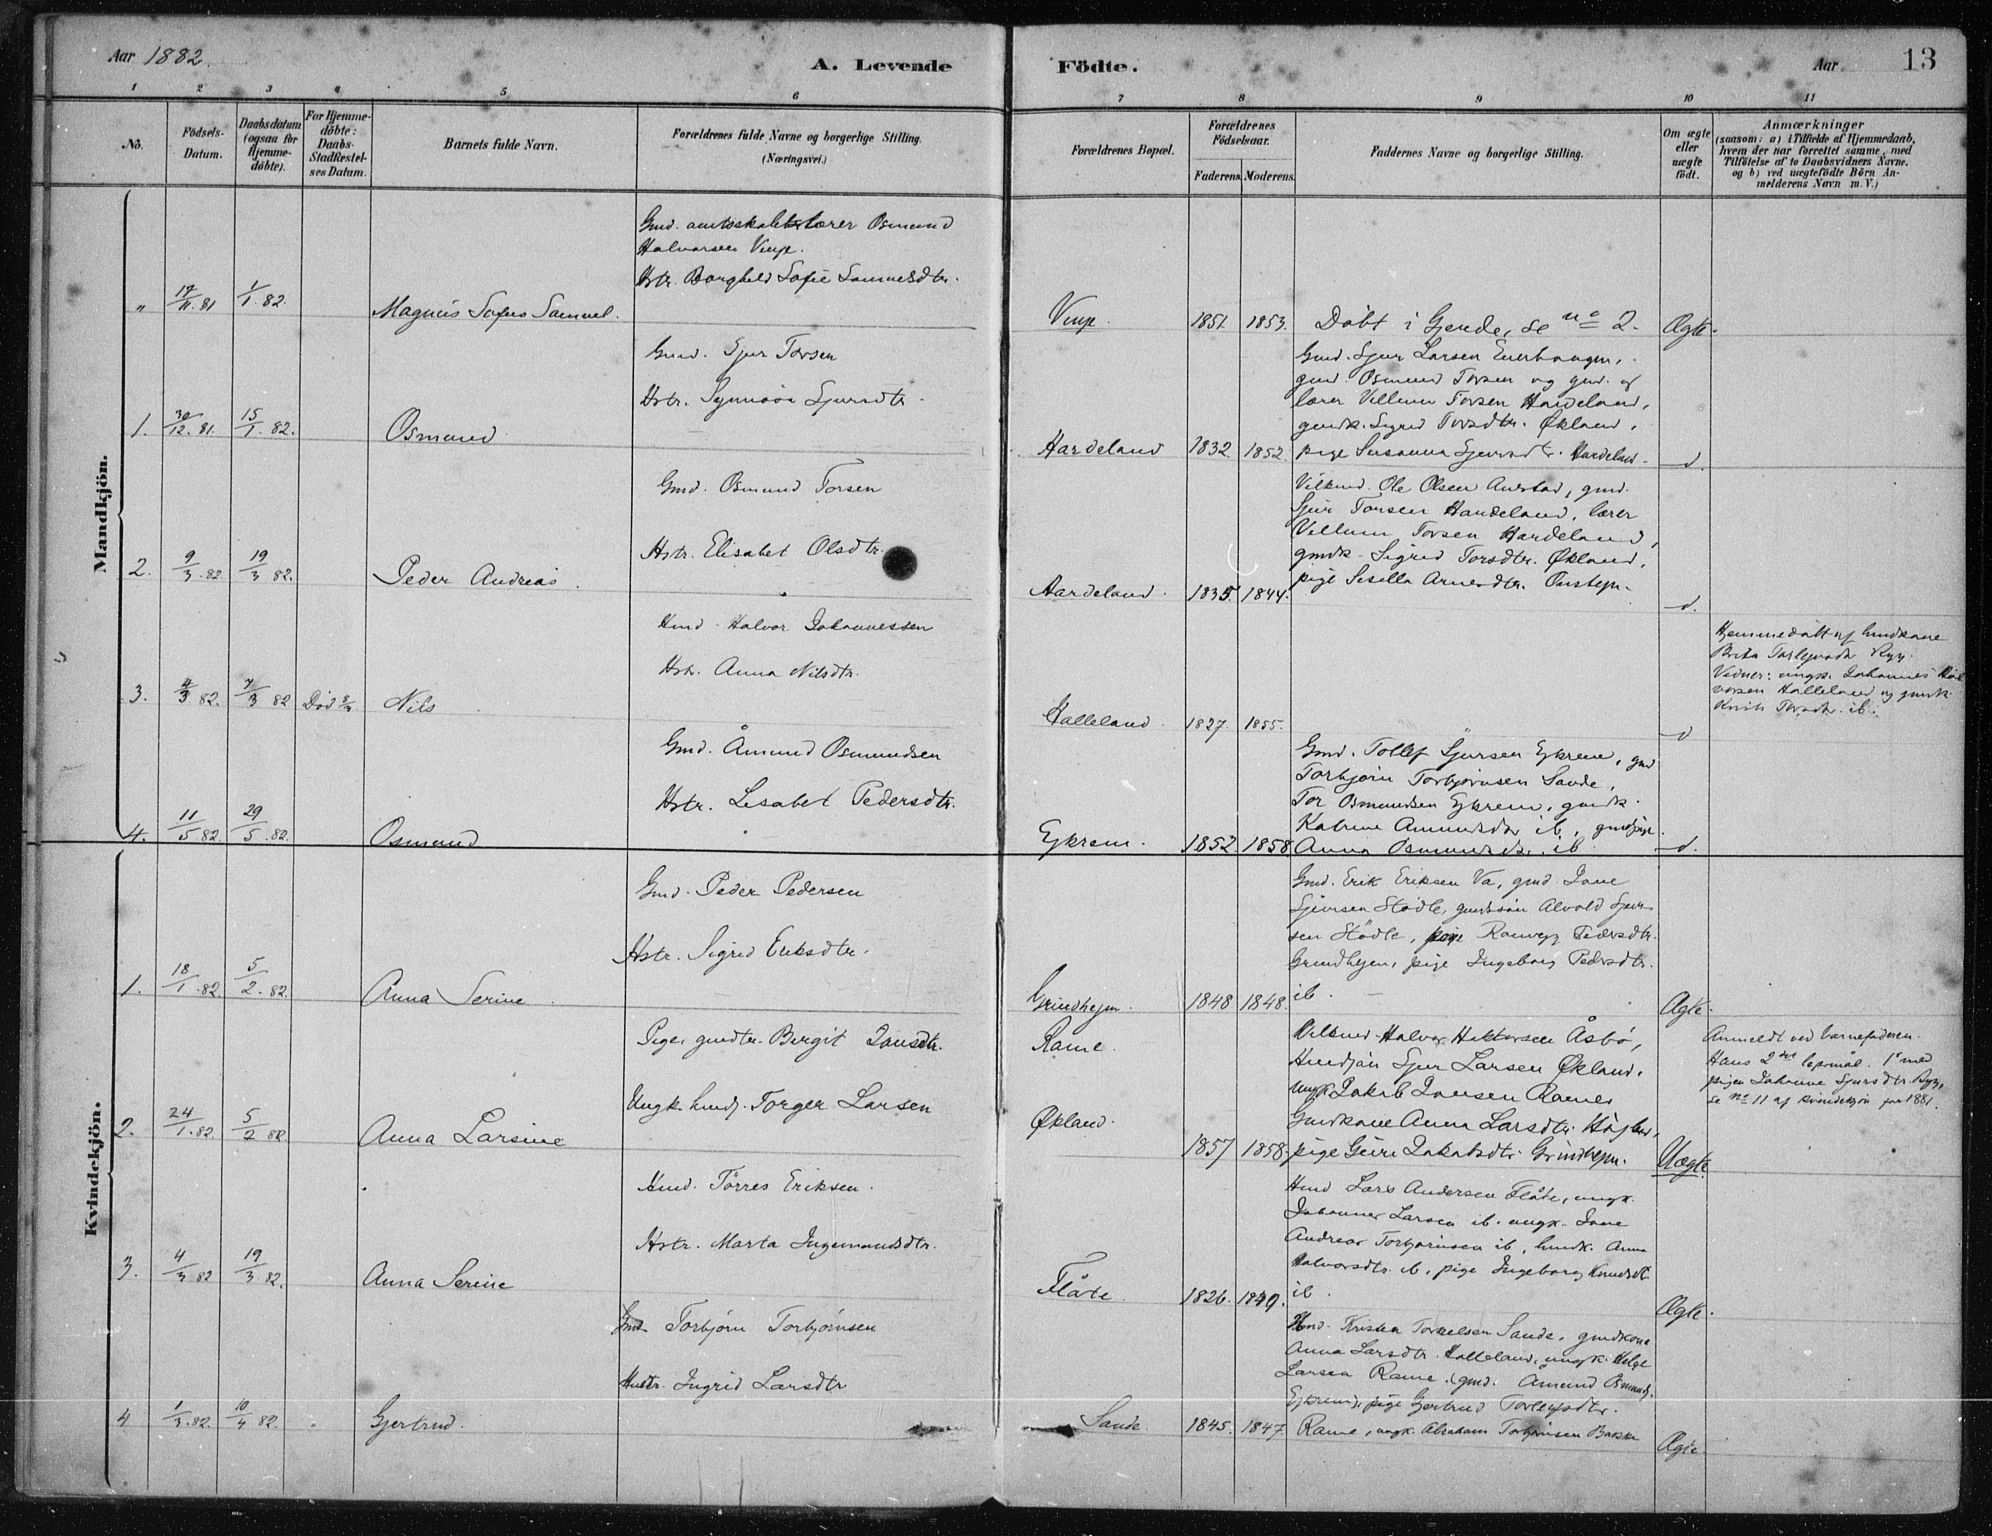 Aar 1882.
A. Levende Födte.
Aar
13
1 2 3 4 5 6 7 8 9 10 11
No.
Födsels-
Datum.
Daabsdatum
(ogsaa for
Hjemme-
döbte).
For Hjemme-
döbte:
Daabs-
Stadfæstel-
ses Datum.
Barnets fulde Navn.
Forældrenes fulde Navne og borgerlige Stilling.
(Næringsvei.)
Forældrenes Bopæl.
Forældrenes
Födselsaar.
Faderens. Moderens.
Faddernes Navne og borgerlige Stilling.
Om ægte
eller
uægte
födt.
Anmærkninger
(saasom: a) i Tilfælde af Hjemmedaab,
hvem der har forrettet samme, med
Tilföielse af to Daabsvidners Navne.
og b) ved uægtefödte Börn An-
melderens Navn m. V.)
Mandkjön.
Gmd. amtsskolelærer Osmund
Halvorsen Vinje.
Hstr. Borghild Sofie Samuelsdtr.
" 17/11.81 1/1.82. Magnus Sofus Samuel.
Vinje. 1851. 1853. Döbt i Gjerde, se no 2. Ægte.
Gmd. Sjur Torsen
Hstr. Synnöva Sjursdtr.
1. 30/12.81. 15/1.82. Osmund
Hardeland 1832. 1852.
Gmd. Sjur Larsen
gmd. Osmund Torsen og gmd. og
lærer Villum Torsen Hardeland,
gmdk. Sigrid Torsdtr. Økland,
pige Susanna Sjursdtr. Hardeland. d.
Gmd. Osmund Torsen
Hstr. Elisabet Olsdtr.
2. 9/3.82. 19/3.82. Peder Andreas.
Hardeland. 1835. 1844.
Ole Olsen Austad, gmd.
Sjur Torsen Hardeland, lærer
Villum Torsen Hardeland,
gmdk. Sigrid Torsdtr. Økland,
pige Sisilla Arnesdtr. d.
Hmd. Halvor Johannessen
Hstr. Anna Nilsdtr.
3. 4/3 82. 7/3 82 Död Nils
Halleland. 1827. 1855. d
Hjemmedöbt af husdkone
Brita
Vidner: ungk. Johannes Hal-
vorsen Halleland og gmdk.
Torsdtr. ib.
Gmd. Åmund Osmundsen
Hstr. Lisabet Pedersdtr.
4. 11/5.82. 29/5.82. Osmund
Ejkrem. 1852. 1858
Gmd. Tollef Sjursen Ejkrem, gmd
Torbjörn Torbjörnsen Sande,
Tor Osmundsen Ejkrem, gmdk.
Katrine Amundsdtr ib, gmdpige
Anna Osmundsdtr. ib. d.
Kvindekjön.
Gmd. Peder Pedersen
Hstr. Sigrid Eriksdtr.
1. 18/1.82. 5/2.82. Anna Serine
Grindhejm. 1848 1848.
Gmd. Erik Eriksen Va, gmd Jone
Sjursen Stödle, gmdssön Alvald Sjur-
sen Stödle, pige Ranveg Pedersdtr.
Grindhejm, pige Ingeborg Pedersdtr.
ib. Ægte.
Pige, gmdtr. Bergit Jonsdtr.
Ungk. husdj. Torger Larsen
2. 24/1.82. 5/2 82. Anna Larsine
Rame.
Økland. 1857. 1858.
Halvor Åsbö,
Sjur Larsen Økland.
ungk. Jakob Jonsen Rames
Gmdkone Anna Larsdtr.
pige Guri Jakobsdtr. Grindhejm. Uægte.
Anmeldt ved barnefaderen.
Hans 2det lejermål. 1ste med
pigen Johanne Sjursdtr. Ryg,
se no 11 af kvindekjön for 1881.
Hmd. Törres Eriksen.
Hstr. Marta Ingemundsdtr.
3. 4/3 82 19/3 82. Anna Serine
Flåte. 1826. 1849.
Hmd Lars Andersen Flåte, ungk.
Johannes Larsen ib. ungk. Jone
Andreas Torbjörnsen ib, husdk. Anna
Halvorsdtr. ib, pige Ingeborg Knudsdtr.
ib. Ægte.
Gmd Torbjörn Torbjörnsen
Hustr. Ingrid Larsdtr
4 1/3.82. 10/4 82. Gjertrud.
Sande 1845. 1847.
Hmd. Kristen Torkelsen Sande, gmdkone
Anna Larsdtr. Halleland, ungk. Helge
Larsen Rame. gmd. Åmund Osmunds.
Ejkrem, pige Gjertrud Torlejfsdtr.
Rame, ungk. Abraham Torbjörnsen Bakke Ægte.